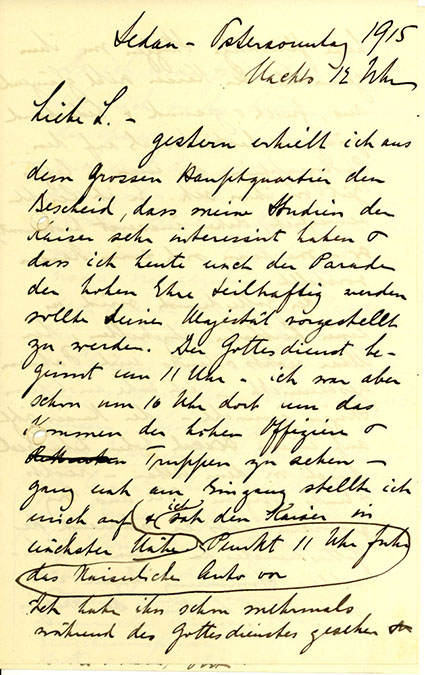 Sedan – Ostersonntag 1915
Nachts 12 Uhr
Liebe L. –
gestern erhielt ich aus
dem Grossen Hauptquartier den
Bescheid, dass meine Studien den
Kaiser sehr interessirt haben &
dass ich heute nach der Parade
der hohen Ehre teilhaftig werden
sollte Seiner Majestät vorgestellt
zu werden. Der Gottesdienst be-
ginnt um 11 Uhr – ich war aber
schon um 10 Uhr dort um das
Kommen der hohen Offiziere &
Truppen zu sehen –
ganz nah am Eingang stellte ich
mich auf & ich sah den Kaiser in
nächster Nähe Punkt 11 Uhr fuhr
das Kaiserliche Auto vor
Ich habe ihn schon mehrmals
während des Gottesdienstes gesehen